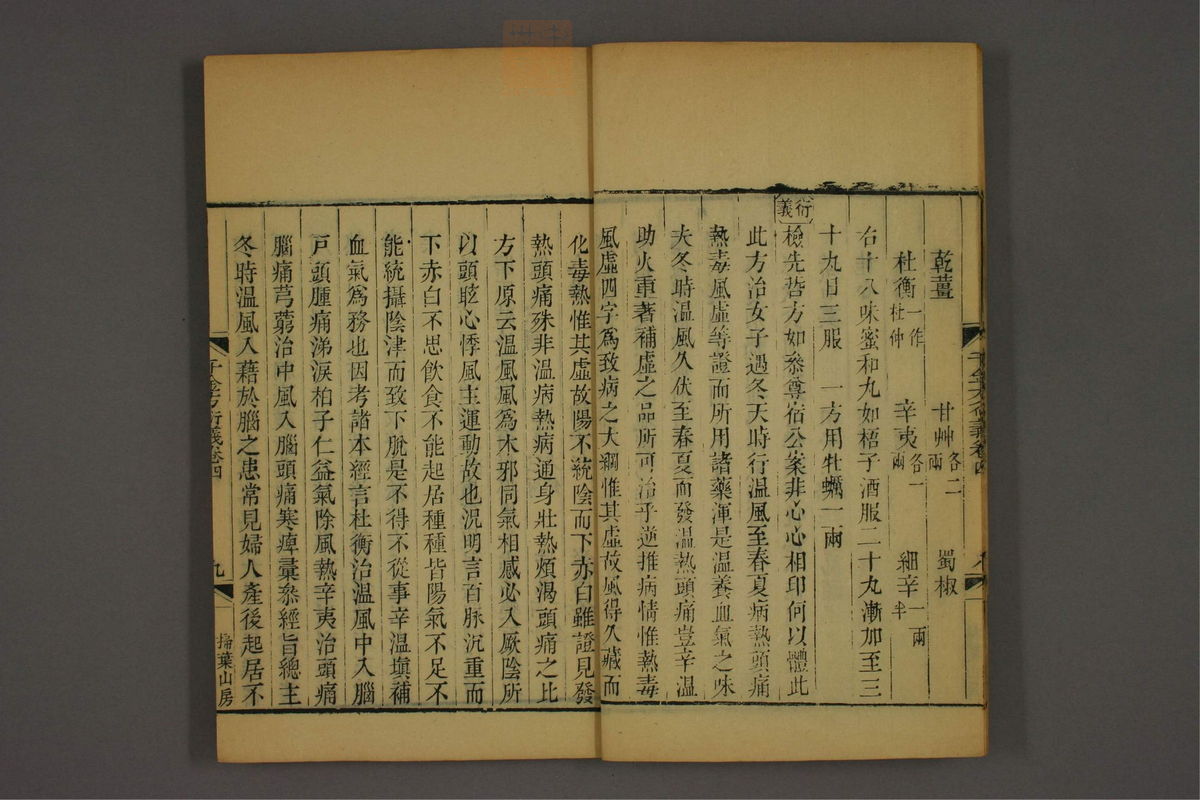 乾薑 甘艸各二兩 蜀椒
杜衡一作杜仲 辛夷各一兩 細辛一兩半
右十八味蜜和丸如梧子酒服二十丸漸加至三
十丸日三服 一方用牡蠣一兩
衍義
檢先哲方如叅尊宿公案非心心相印何以體此
此方治女子遇冬天時行溫風至春夏病熱頭痛
熱毒風虛等證而所用諸藥渾是溫養血氣之味
夫冬時溫風久伏至春夏而發溫熱頭痛豈辛溫
助火重著補虛之品所可治乎逆推病情惟熱毒
風虛四字為致病之大綱惟其虛故風得久藏而
化毒熱惟其虛故陽不統陰而下赤白雖證見發
熱頭痛殊非溫病熱病通身壯熱煩渴頭痛之比
方下原云溫風風為木邪同氣相感必入厥陰所
以頭眩心悸風主運動故也況明言百脉沉重而
下赤白不思飲食不能起居種種皆陽氣不足不
能統攝陰津而致下脫是不得不從事辛溫塡補
血氣爲務也因考諸本經言杜衡治溫風中入腦
戸頭腫痛涕淚柏子仁益氣除風熱辛夷治頭痛
腦痛芎藭治中風入腦頭痛寒痺稾叅經旨總主
冬時溫風入藉於腦之患常見婦人產後起居不
千金方衍義卷四
九
掃葉山房